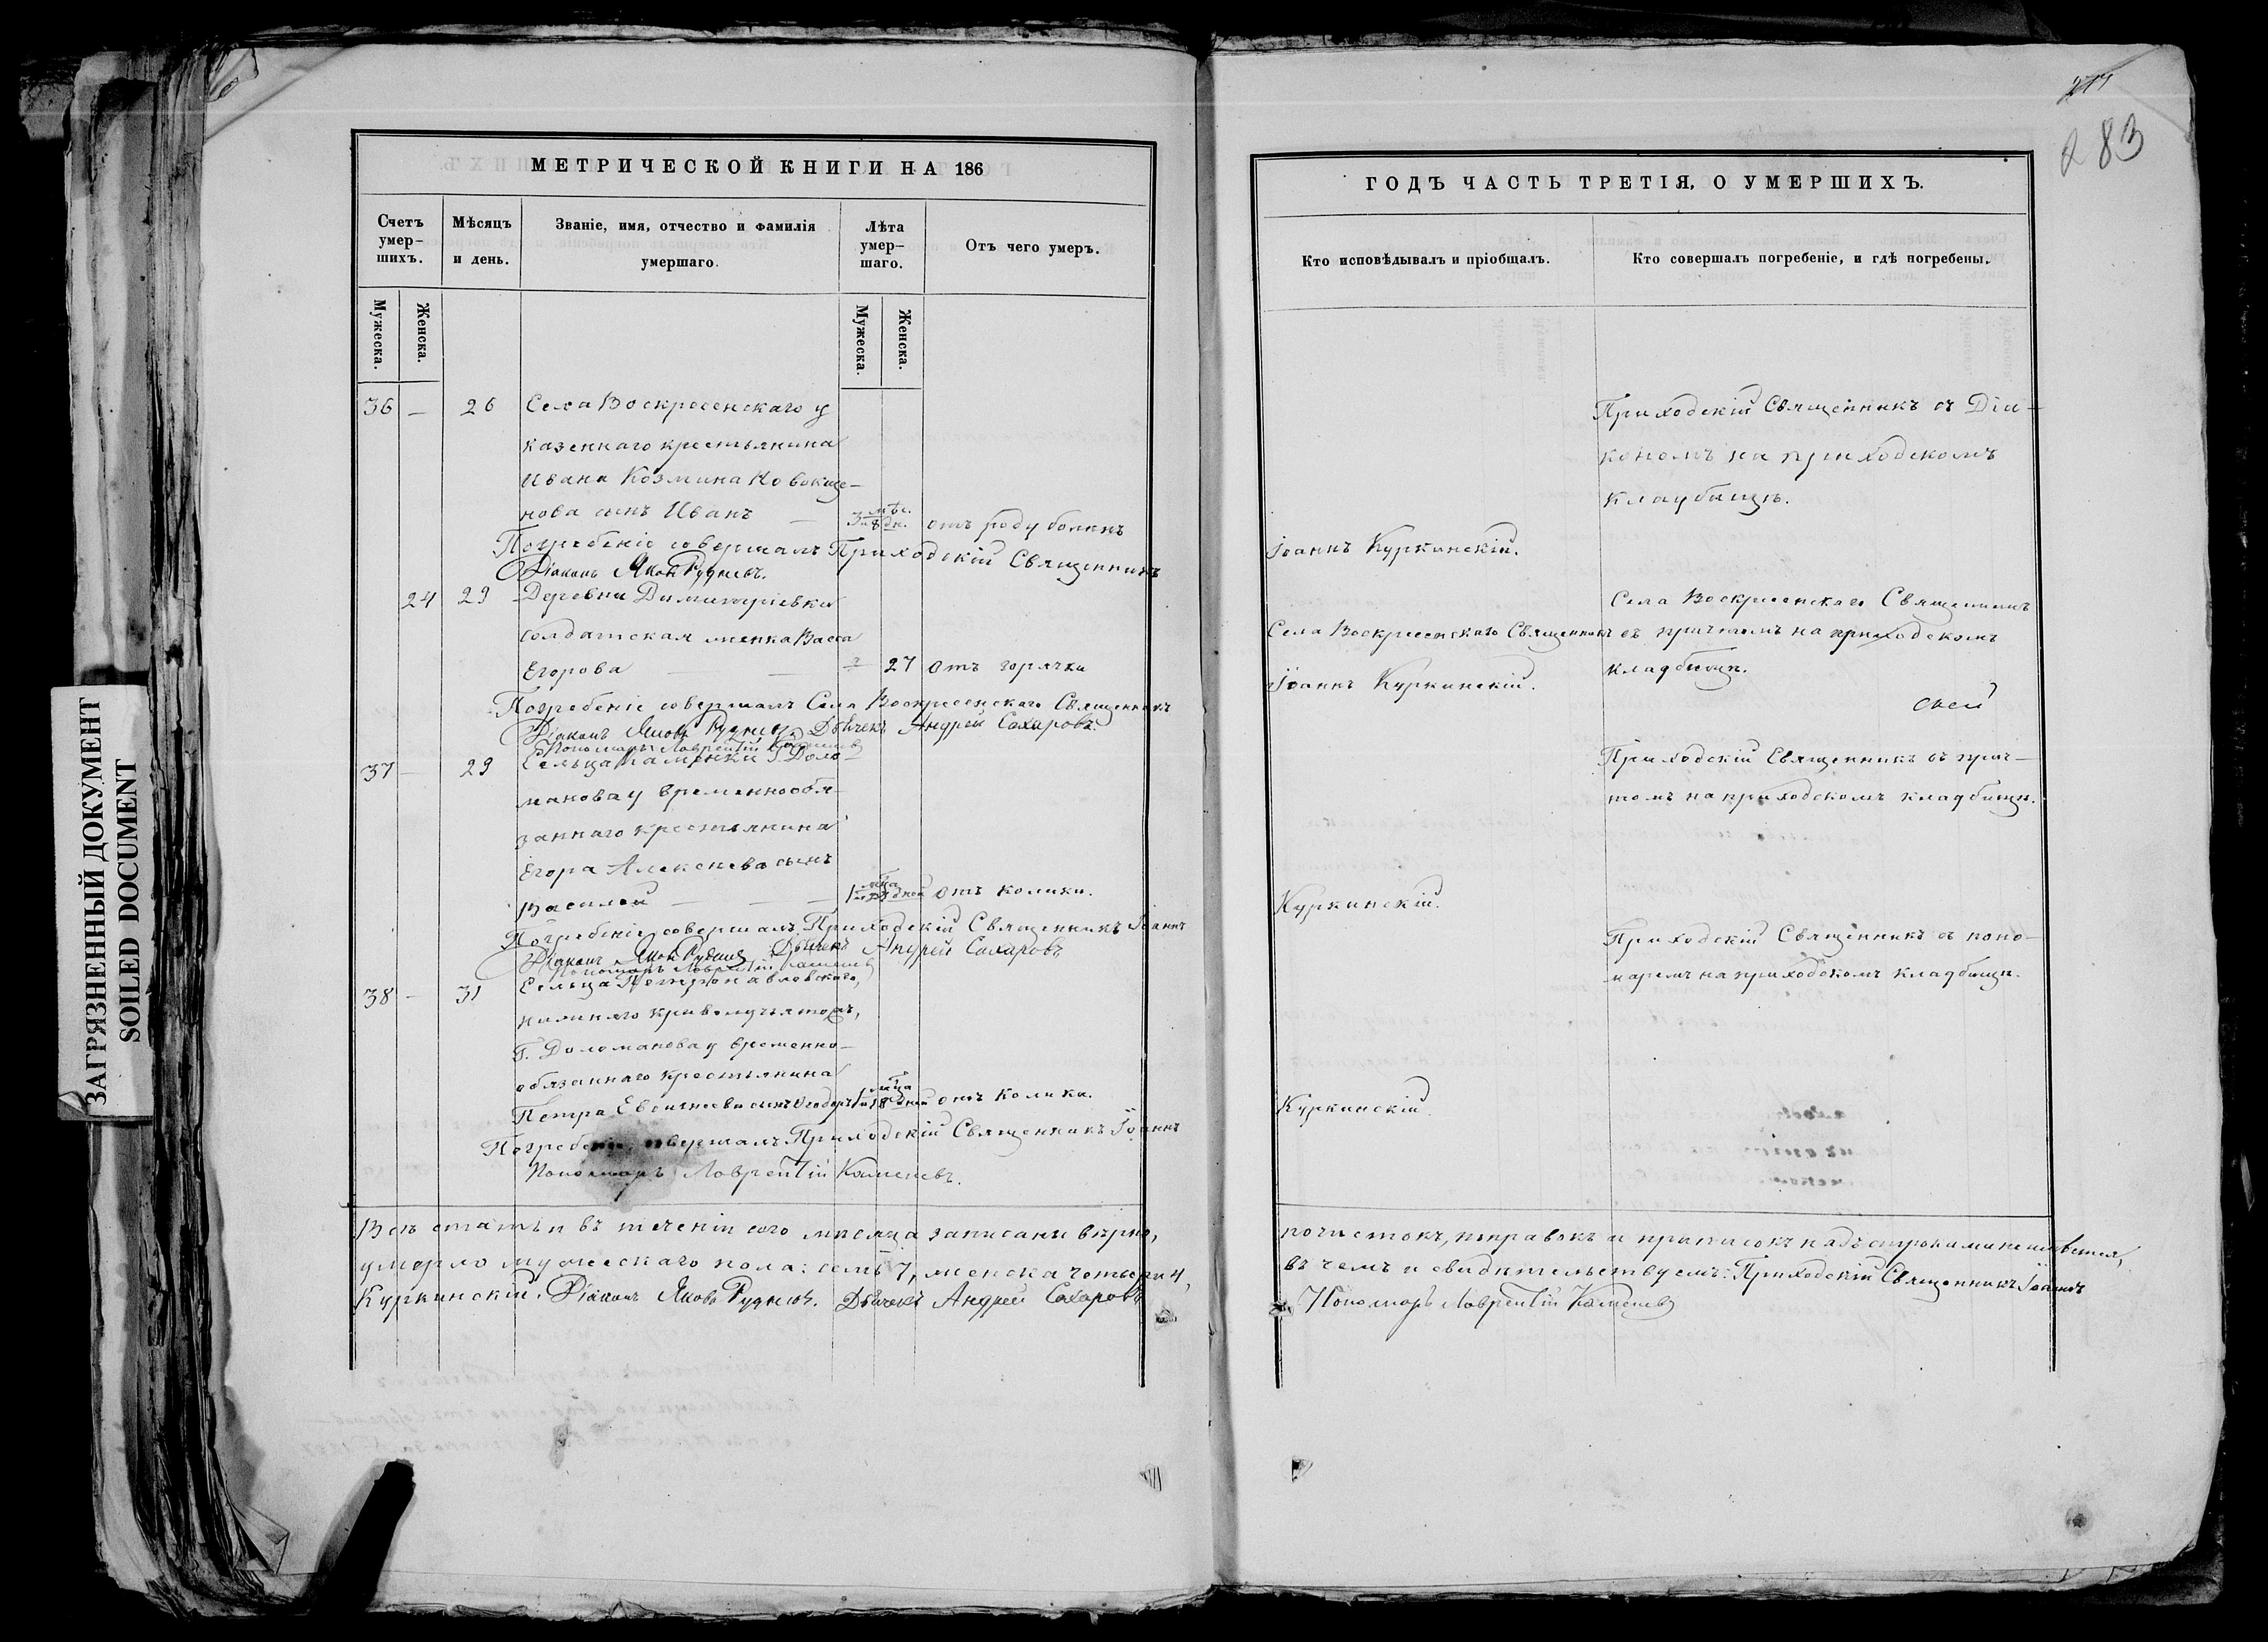 ЗАГРЯЗНЕННЫЙ ДОКУМЕНТ
SOILED DOCUMENT
МЕТРИЧЕСКОЙ КНИГИ НА 186
Счетъ умер-шихъ.
Мѣсяцъ и день.
Званіе, имя, отчество и фамилія умершаго.
Лѣта умер-шаго.
Отъ чего умеръ.
Мужеска.
Женска.
Мужеска.
Женска.
36 — 26 Села Воскресенскаго у
казеннаго крестьянина
Ивана Козмина Новокще-
нова сынъ Иванъ — 3 мѣс. и 8 дн. отъ роду боленъ
Погребеніе совершалъ Приходскій Священникъ
Діаконъ Яковъ Рудневъ.
24 29 Деревни Димитріевки
солдатская женка Васса
Егорова — — 27 отъ горячки
Погребеніе совершалъ Села Воскресенскаго Священникъ
Діаконъ Яковъ Рудневъ. Дьячекъ Андрей Сахаровъ.
Пономарь Лаврентій Каменевъ
37 — 29 Сельца Каменки Г. Доло-
манова у временнообя-
заннаго крестьянина
Егора Алексѣева сынъ
Василій — — 1 мца и дней отъ колики.
Погребеніе совершалъ Приходскій Священникъ Іоаннъ
Діаконъ Яковъ Рудневъ Дьячекъ Андрей Сахаровъ
Пономарь Лаврентій Каменевъ
38 — 31 Сельца Петропавловскаго,
Г. Доломанова у временно-
обязаннаго крестьянина
Петра сынъ Ѳеодоръ 1 мца и 8 дней отъ колики.
Погребеніе совершалъ Приходскій Священникъ Іоаннъ
Пономарь Лаврентій Каменевъ.
Всѣ статьи въ теченіи сего мѣсяца записаны вѣрно,
умерло мужескаго пола: семь 7, женска четыри 4,
Куркинскій. Діаконъ Яковъ Рудневъ. Дьячекъ Андрей Сахаровъ
283
ГОДЪ ЧАСТЬ ТРЕТІЯ, О УМЕРШИХЪ.
Кто исповѣдывалъ и пріобщалъ.
Кто совершалъ погребеніе, и гдѣ погребены.
Приходскій Священникъ съ Діа-
кономъ на приходскомъ
кладбищѣ.
Іоаннъ Куркинскій.
Села Воскресенскаго Священникъ
Села Воскресенскаго Священникъ съ причтомъ на приходскомъ
кладбищѣ.
Іоаннъ Куркинскій.
Приходскій Священникъ съ прич-
томъ на приходскомъ кладбищѣ.
Куркинскій.
Приходскій Священникъ съ поно-
маремъ на приходскомъ кладбищѣ.
Куркинскій.
почистокъ, поправокъ и приписокъ надъ строками не имѣется,
въ чемъ и свидѣтельствуемъ: Приходскій Священникъ Іоаннъ
Пономарь Лаврентій Каменевъ